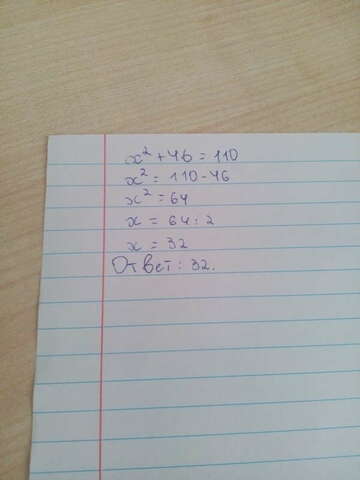 x² + 46 = 110
x² = 110 - 46
x² = 64
x = 64 : 2
x = 32
Ответ: 32.